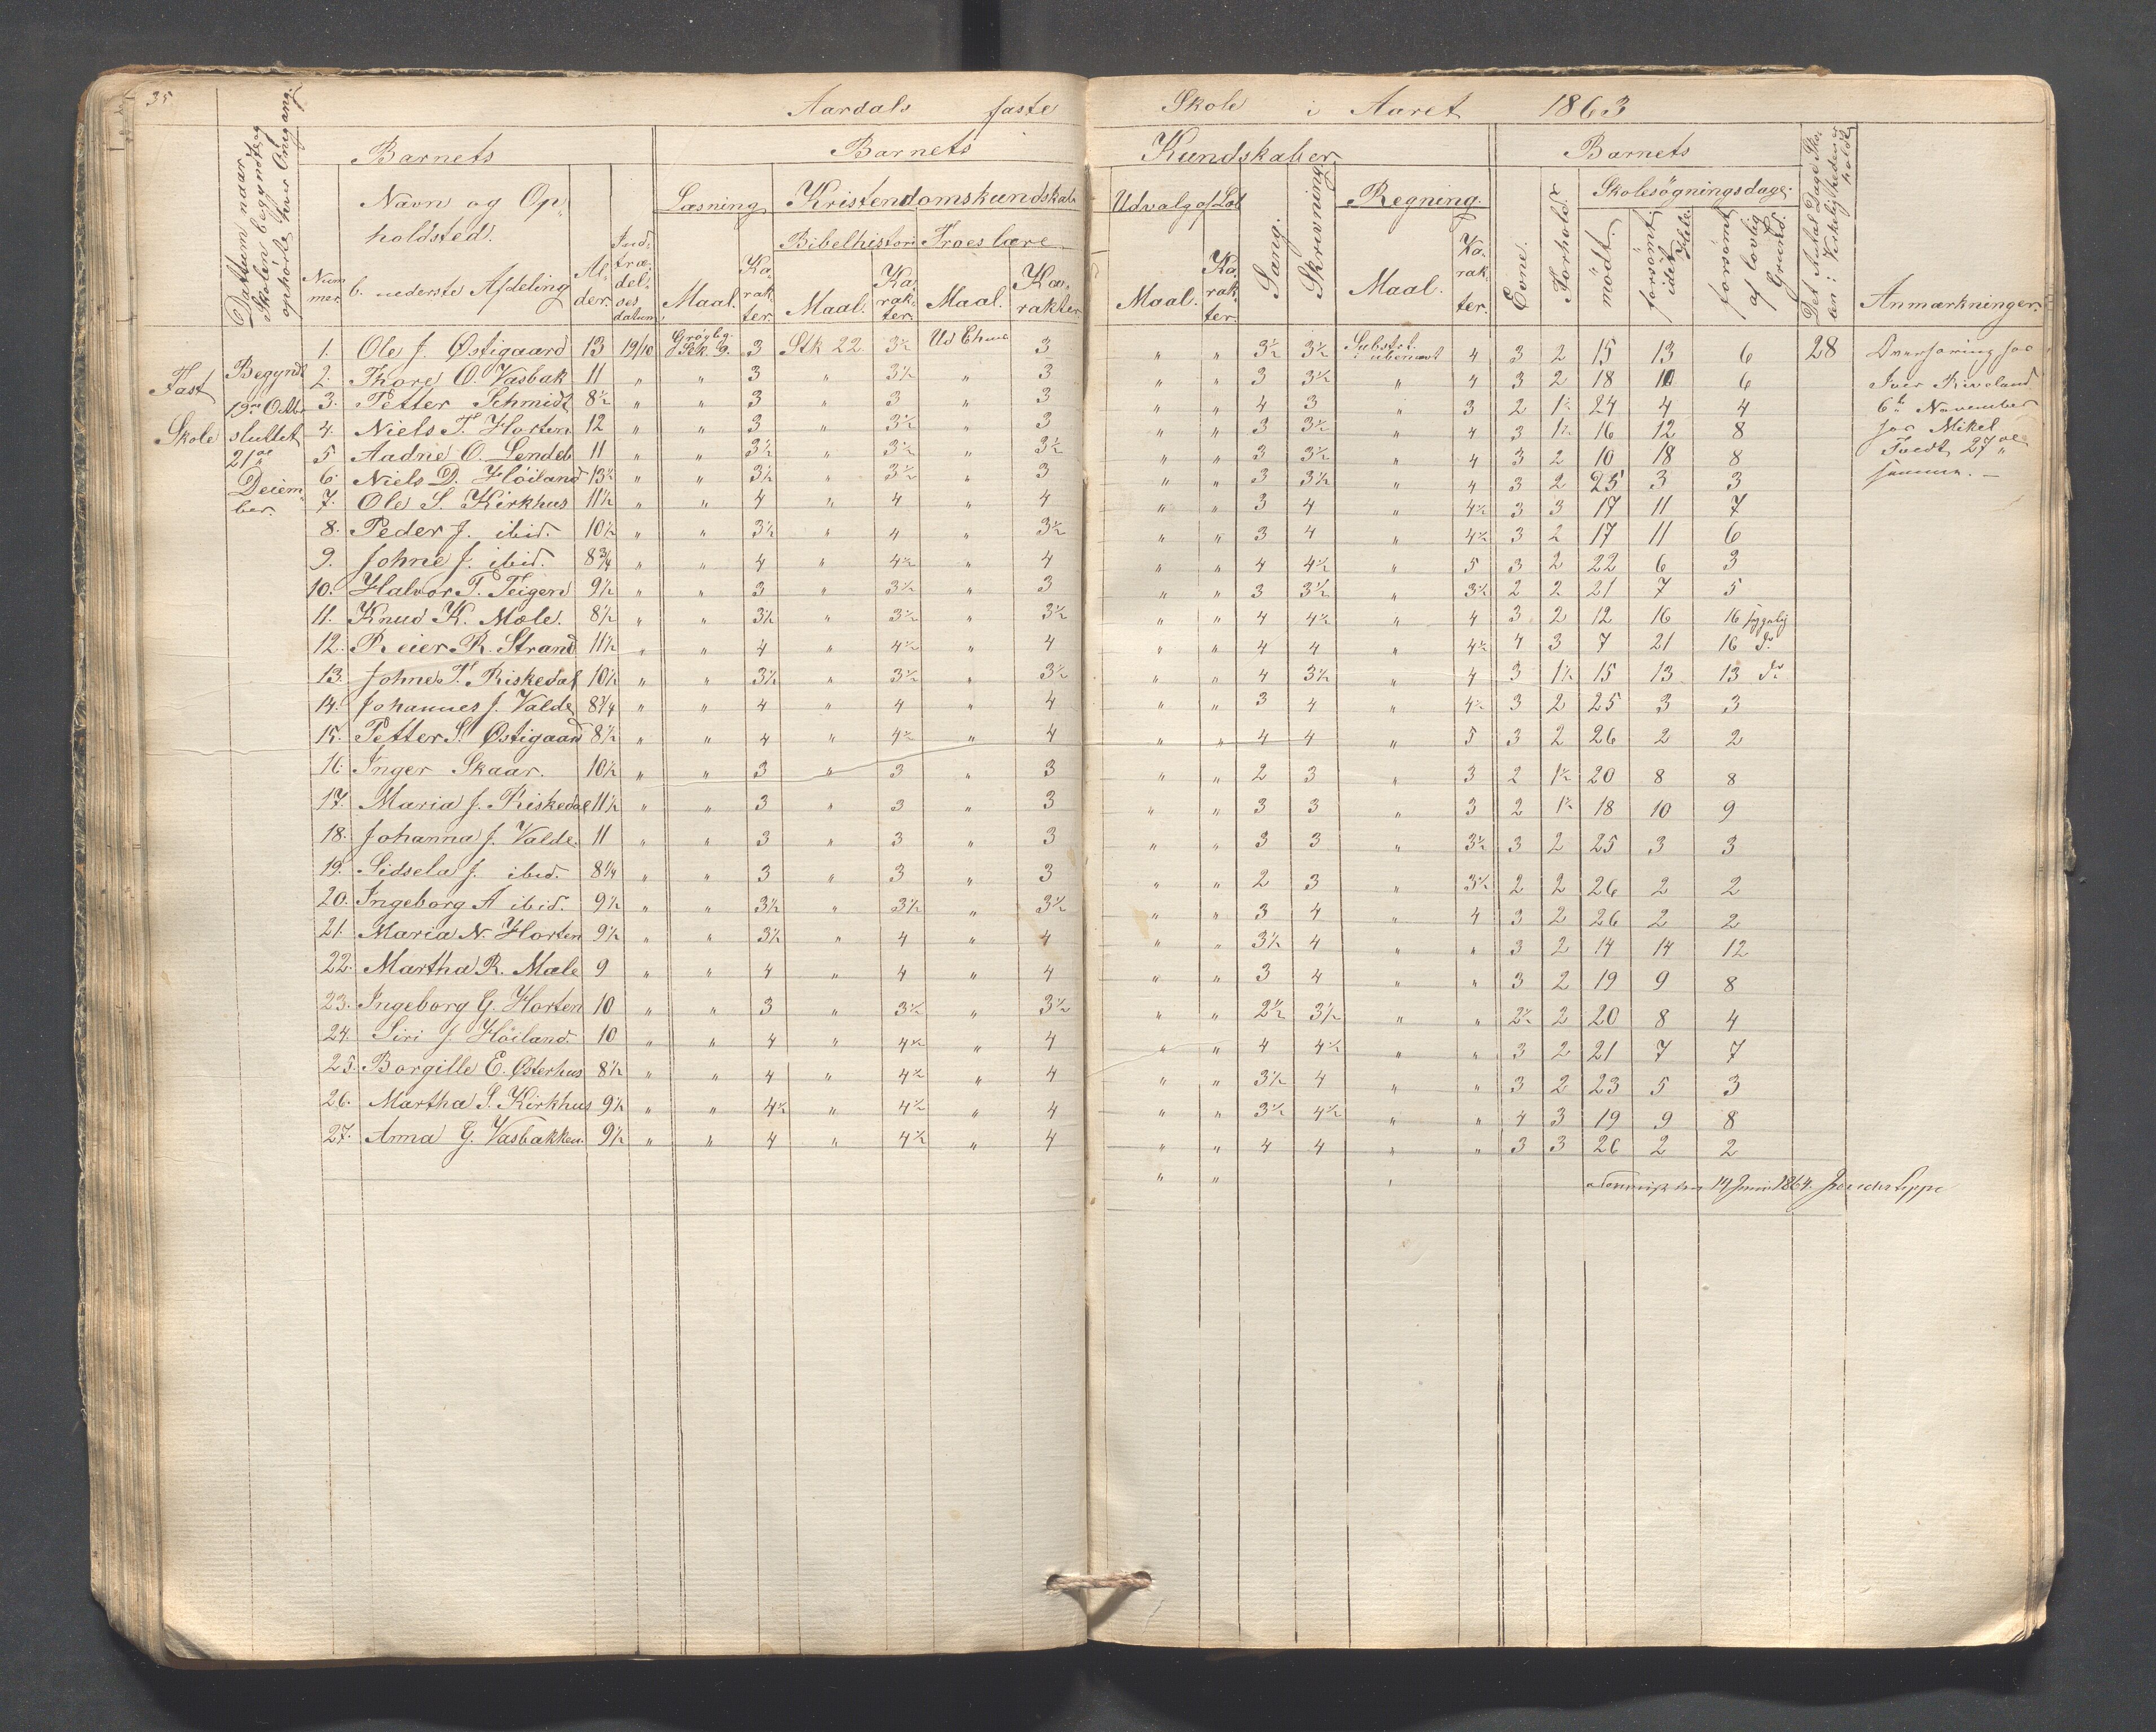 35
Aardals faste Skole i Aaret 1863
Dattum naar Skolen begyndte og ophørte hver Omgang.
Barnets
Barnets Kundskaber.
Barnets
Det Antal Dage Skolen i Virkeligheden er holdt
Nummer
Navn og Opholdsted.
b. nederste Afdeling
Alder.
Indtrædelsesdatum.
Læsning
Kristendomskundskab
Bibelhistori
Troeslære
Udvalg af Læb
Sang.
Skrivning.
Regning.
Evne.
Forhold.
Skolesøgningsdage.
mødt.
forsømt idet Hele.
forsømt af lovlig Grund.
Maal. Karakter. Maal. Karakter. Maal. Karakter Maal. Karakter. Maal. Karakter.
Anmærkninger.
Fast Skole
Begyndt 19de Octbr sluttet 21de Deciember.
1. Ole J. Østigaard 13 19/10 Stk. 9. 3 Stk 22 3½ Ud Ehme 3 " " 3½ 3½ Substr. i ubenævt 4 3 2 15 13 6 28
2. Thore O. Vasbak 11 " " 3 " 3½ " 3 " " 3 3½ " 4 3 2 18 10 6
3. Petter Schmidt 8½ " " 3 " 3 " 3 " " 4 3 " 3 2 1½ 24 4 4
4. Niels T. Horten 12 " " 3 " 3½ " 3 " " 3 3½ " 4 3 1½ 16 12 8
5 Aadne O. Lendeb 11 " " 3½ " 3½ " 3½ " " 3 3½ " 4 3 2 10 18 8
6. Niels D. Høiland 13½ " " 3½ " 3½ " 3 " " 3 3½ " 4 3 2 25 3 3
7. Ole S. Kirkhus 11½ " " 4 " 4 " 4 " " 3 4 " 4½ 3 3 17 11 7
8. Peder J. ibid. 10½ " " 3½ " 4 " 3½ " " 3 4 " 4½ 3 2 17 11 6
9. Johne J. ibid. 8¾ " " 4 " 4½ " 4 " " 4 4½ " 5 3 2 22 6 3
10. Halvor T. Teigen 9½ " " 3 " 3½ " 3 " " 3 3½ " 3½ 2 2 21 7 5
11. Knud K. Mæle. 8½ " " 3½ " 3½ " 3½ " " 4 4½ " 4 3 2 12 16 16 sygelig
12. Reier R. Strand 11½ " " 4 " 4½ " 4 " " 4 4 " 4½ 4 3 7 21 16 do
13. Johne T. Riskedal 10½ " " 3½ " 3½ " 3½ " " 4 3½ " 4 3 1½ 15 13 13 do
14. Johannes J. Valde 8¾ " " 4 " 4 " 4 " " 3 4 " 4½ 3 2 25 3 3
15. Petter S. Østigaard 8½ " " 4 " 4½ " 4 " " 4 4 " 5 3 2 26 2 2
16. Inger Skaar. 10½ " " 3 " 3 " 3 " " 2 3 " 3 2 1½ 20 8 8
17. Maria J. Riskedal 11½ " " 3 " 3 " 3 " " 3 3 " 3 2 1½ 18 10 9
18. Johanna J. Valde. 11 " " 3 " 3 " 3 " " 3 3 " 3½ 3 2 25 3 3
19. Sidsela J. ibid. 8¼ " " 3 " 3 " 3 " " 2 3 " 3½ 2 2 26 2 2
20. Ingeborg A ibid. 9½ " " 3½ " 3½ " 3½ " " 3 4 " 4 3 2 26 2 2
21. Maria N. Horten 9½ " " 3½ " 4 " 4 " " 3½ 4 " " 3 2 14 14 12
22. Martha R. Mæle 9 " " 4 " 4 " 4 " " 3 4 " " 3 2 19 9 8
23. Ingeborg G. Horten 10 " " 3 " 3½ " 3½ " " 2½ 3½ " " 2½ 2 20 8 4
24. Siri J. Høiland. 10 " " 4 " 4½ " 4 " " 4 4½ " " 3 2 21 7 7
25. Borgille E. Østerhus 8½ " " 4 " 4½ " 4 " " 3½ 4 " " 3 2 23 5 3
26. Martha S. Kirkhus 9½ " " 4½ " 4½ " 4 " " 3½ 4½ " " 4 3 19 9 8
27. Anna G. Vasbakken. 9½ " " 4 " 4½ " 4 " " 4 4 " " 3 3 26 2 2
Iver Riveland
6te November
for Mikel
Tvedt 27de
samme. —
14 Juni 1864.